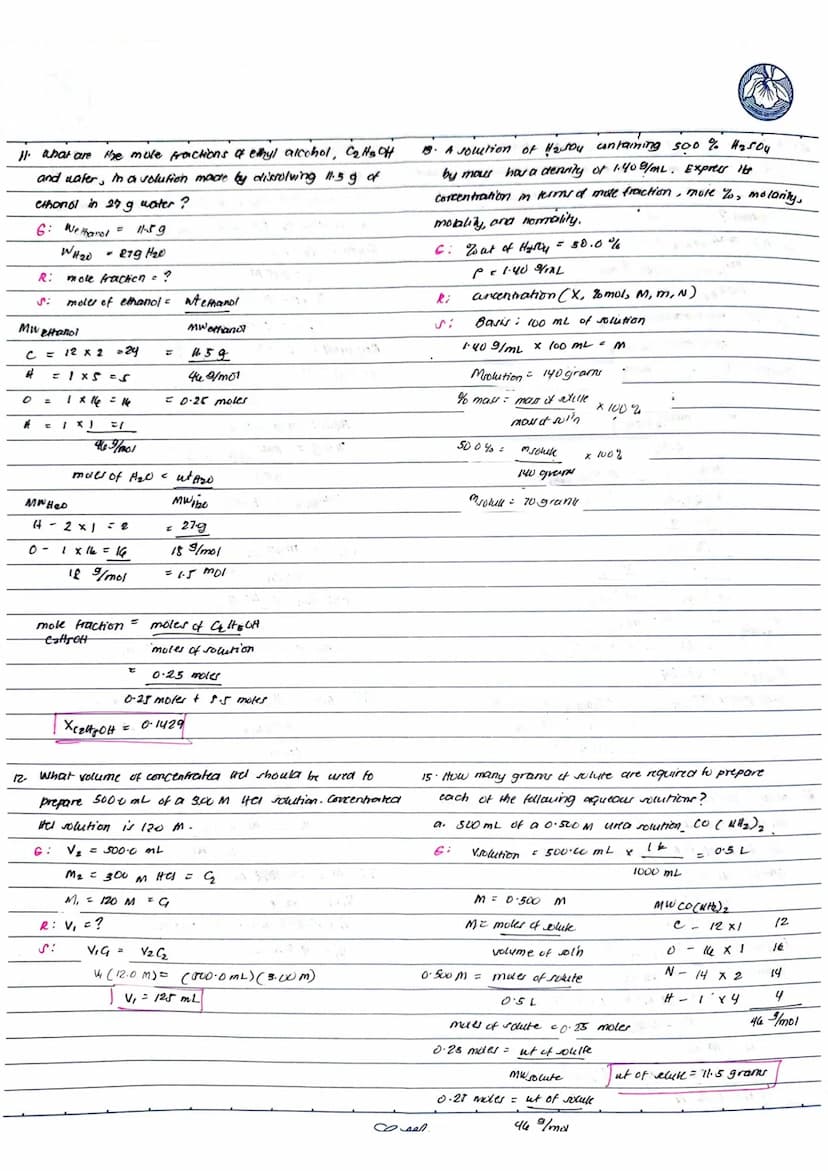 11. What are the mole fractions of ethyl alcohol, C2H5OH
and water, in a solution made by dissolving 11.5 g of
ethanol in 27 g water?
G: Wethanol = 11.5 g
WH2O = 27g H2O
R: mole fraction = ?
S: moles of ethanol = wtethanol
MWethanol
MWethanol
C = 12 x 2 = 24 = 11.5 g
H = 1 x 5 = 5 46 g/mol
O = 1 x 16 = 16 = 0.25 moles
H = 1 x 1 = 1
46 g/mol
moles of H2O = wtH2O
MWH2O MWH2O
H - 2 x 1 = 2 = 27g
O - 1 x 16 = 16 18 g/mol
18 g/mol = 1.5 mol
mole fraction = moles of C2H5OH
C2H5OH
moles of solution
= 0.25 moles
0.25 moles + 1.5 moles
XC2H5OH = 0.1429
12. What volume of concentrated HCl should be used to
prepare 500.0 mL of a 3.00 M HCl solution. Concentrated
HCl solution is 12.0 M.
G: V2 = 500.0 mL
M2 = 3.00 M HCl = C2
M1 = 12.0 M = C1
R: V1 = ?
S: V1C1 = V2C2
V1 (12.0 M) = (500.0 mL)(3.00 M)
V1 = 125 mL
A solution of H2SO4 containing 50.0 % H2SO4
by mass has a density of 1.40 g/mL. Express its
concentration in terms of mole fraction, mole %, molarity,
molality, and normality.
G: % wt of H2SO4 = 50.0 %
ρ = 1.40 g/mL
R: concentration (X, %mol, M, m, N)
S: Basis: 100 mL of solution
1.40 g/mL x 100 mL = m
Msolution = 140 grams
% mass = mass of solute x 100 %
mass of sol'n
50.0 % = msolute x 100 %
140 grams
msolute = 70 grams
15. How many grams of solute are required to prepare
each of the following aqueous solutions?
a. 500 mL of a 0.500 M urea solution, CO(NH2)2
G: Vsolution = 500.00 mL x 1 L = 0.5 L
1000 mL
M = 0.500 M
M = moles of solute
volume of sol'n
0.500 M = moles of solute
0.5 L
moles of solute = 0.25 moles
0.25 moles = wt of solute
MWsolute
0.25 moles = wt of solute
46 g/mol
MWCO(NH2)2
C - 12 x 1 12
O - 16 x 1 16
N - 14 x 2 14
H - 1 x 4 4
46 g/mol
wt of solute = 11.5 grams